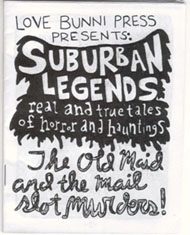 LOVE BUNNI PRESS
PRESENTS:
SUBURBAN
LEGENDS
real and true tales
of horror and hauntings
The Old Maid
and the mail
slot murders!